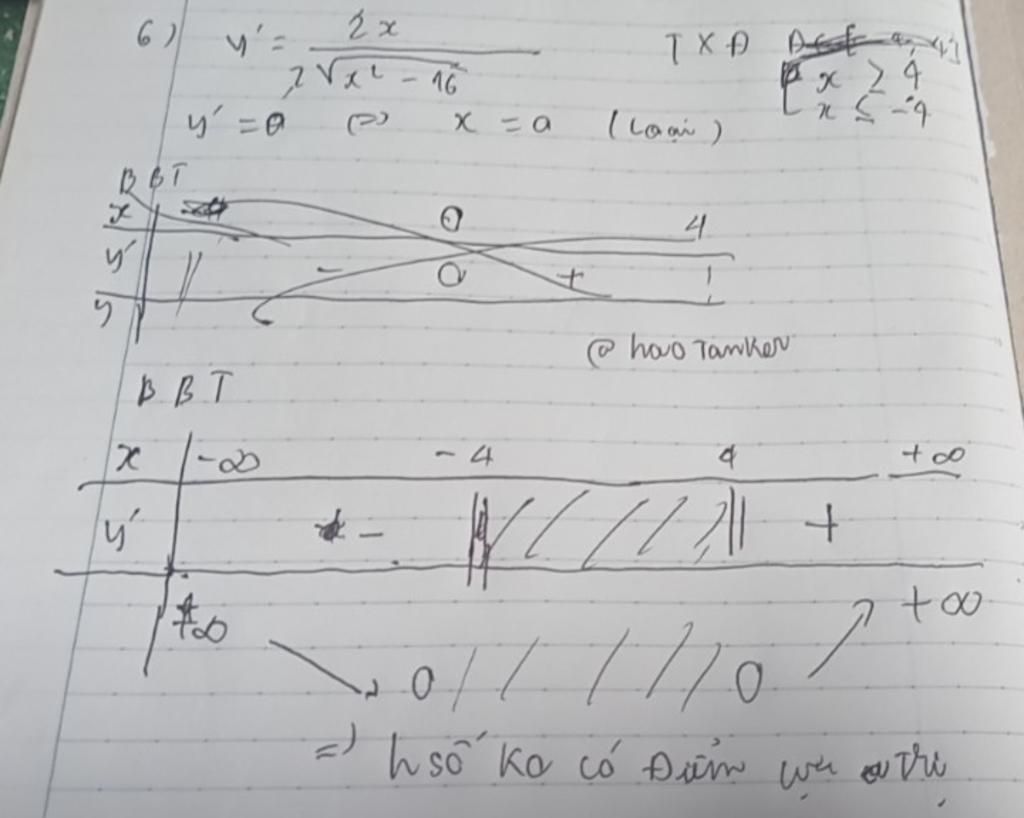 6) y' = 2x / 2√(x² - 16) TXĐ
[ x ≥ 4
x ≤ -4
y' = 0 (=) x = 0 (Loại)
BBT
x 0 4
y' || - 0 +
y
@haoTanker
BBT
x -∞ -4 4 +∞
y' - || || +
+∞ 0 0 +∞
=) h số ko có Điểm cực trị